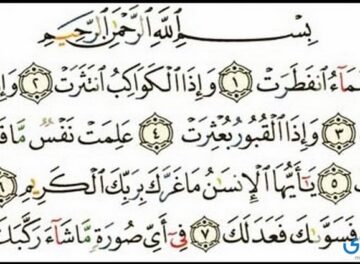 بِسْمِ ٱللَّهِ ٱلرَّحْمَٰنِ ٱلرَّحِيمِ
ٱنفَطَرَتْ ١ وَإِذَا ٱلْكَوَاكِبُ ٱنتَثَرَتْ ٢
٣ وَإِذَا ٱلْقُبُورُ بُعْثِرَتْ ٤ عَلِمَتْ نَفْسٌ مَّا
٥ يَٰٓأَيُّهَا ٱلْإِنسَٰنُ مَا غَرَّكَ بِرَبِّكَ ٱلْكَرِيمِ
فَسَوَّىٰكَ فَعَدَلَكَ ٧ فِىٓ أَىِّ صُورَةٍ مَّا شَآءَ رَكَّبَكَ